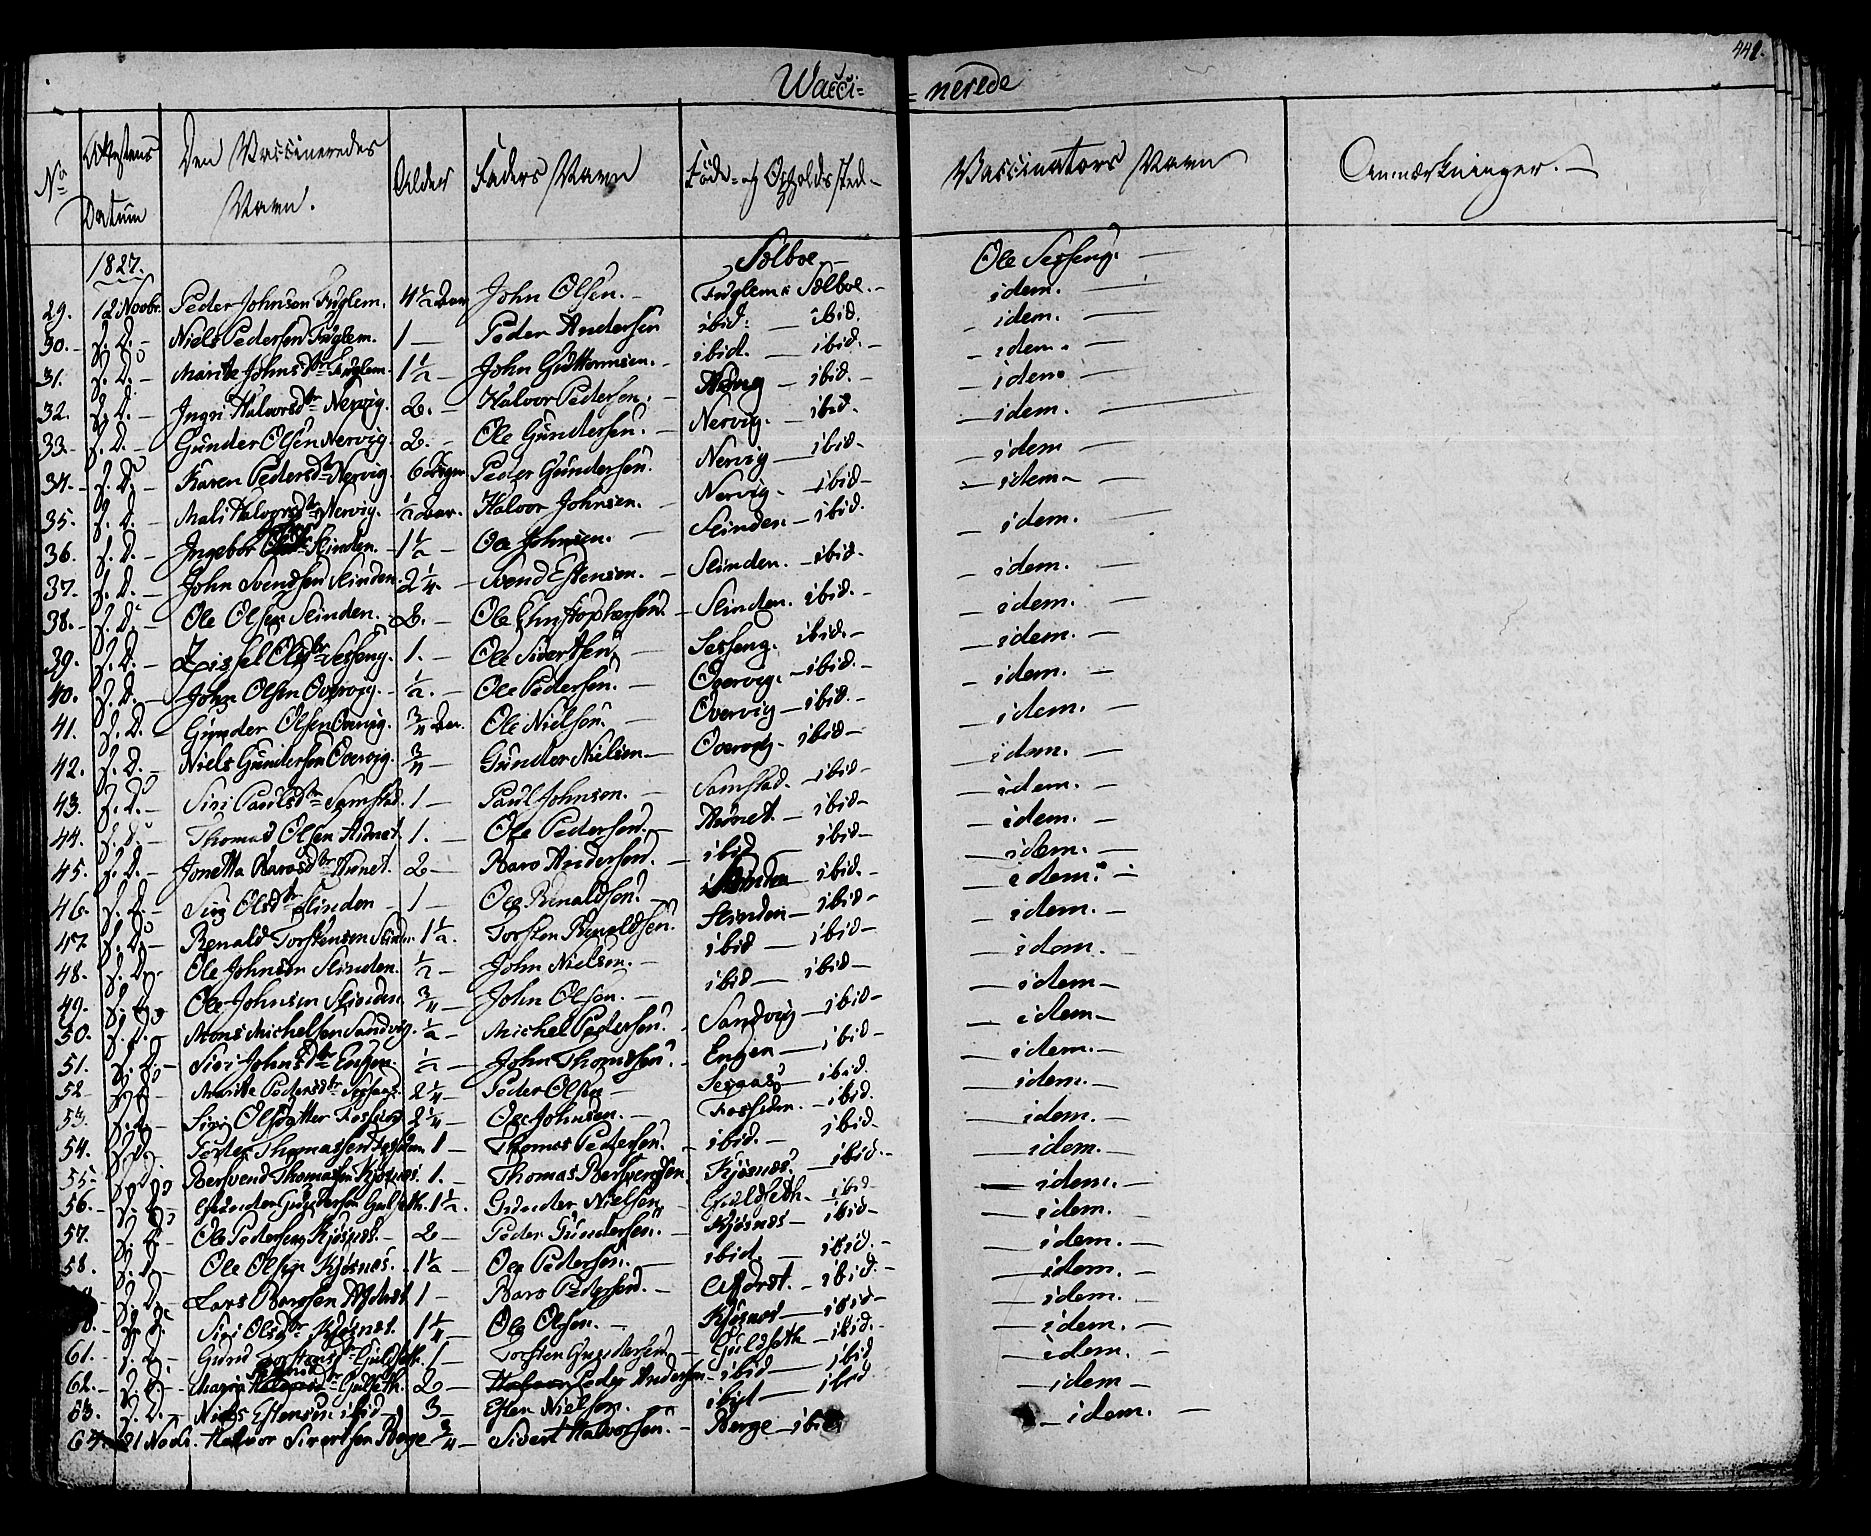 441.
Wacci= =nerede
No Attestens Datum Den Vaccineredes Navn. Alder Faders Navn Føde- og Opholdssted- Vaccinators Navn Anmærkninger.-
1827. Selboe- Ole Sesseng.
29. 12 Novbr. Peder Johnsen Fuglem. 4 1/2 Aar John Olsen.- Fuglem i Selboe.- idem.
30.- S. D.- Niels Pedersen Fuglem. 1- Peder Andersen ibid.- ibid. idem.
31. S. D.- Marite Johnsdtr Fuglem. 1 1/2- John Guttormsen.- ibid.- ibid.- idem.
32. S. D.- Ingri Halvorsdtr Nervig. 2.- Halvor Pedersen.- ibid.- idem.
33.- S. D.- Gunder Olsen Nervig. 2.- Ole Gundersen.- Nervig.- ibid. idem.
34.- S. D.- Karen Pedersdtr Nervig 6 Peder Gundersen. Nervig- ibid- idem
35. S. D.- Mali Halvorsdtr Nervig. 1/2 Aar. Halvor Johnsen.- Nervig.- ibid- idem-
36. S. D.- Ingebor Slinden.- 1 1/2- Ole Johnsen.- Slinden- ibid. idem.
37.- S. D.- John Svendsen Slinden. 2 1/4.- Svend Estensen.- Slinden.- ibid. idem.
38.- S. D.- Ole Olsen Slinden. 2.- Ole Christophersen.- Slinden. ibid.- idem.
39. S. D.- Zissel Olsdtr Sesseng. 1.- Ole Sivertsen,- Sesseng. ibid.- idem.
40. S. D.- John Olsen Overvig.- 1/2.- Ole Pedersen.- Overvig.- ibid- idem.
41. S. D.- Gunder Olsen Overvig. 3/4 Aar. Ole Nielsen.- Overvig- ibid.- idem.
42. S. D.- Niels Gundersen Overvig. 3/4- Gunder Nielsen- Overvig.- ibid- idem.
43. S. D.- Siri Paulsdtr Samstad. 1- Paul Johnsen.- Samstad.- ibid- idem.
44. S. D.- Thomas Olsen Aunet. 1.- Ole Pedersen.- Aunet.- ibid- idem.
45. S. D.- Jonetta Baarosdtr Aunet. 2- Baro Andersen.- ibid- ibid- idem.
46. S. D.- Siri Olsdtr Slinden- 1- Ole Renaldsen.- ibid.- idem.
47. S. D.- Renald Torstensen Slinden 1 1/2. Torsten Renaldsen. Slinden- ibid- idem.
48. S. D.- Ole Johnsen Slinden. 1/2- John Nielsen.- ibid- ibid- idem.
49. S. D. Ole Johnsen Slinden. 3/4- John Olsen.- ibid- ibid- idem-
50. S. D. Mons Michelsen Sandvig. 1/2- Michel Pedersen. Sandvig- ibid- idem-
51. S. D.- Siri Johnsdtr Engen 1/2- John Thomesen. Engen- ibid- idem.-
52- S. D. Marite Pedersdtr 2 1/4- Peder Olsen- ibid. idem.-
53. S. D.- Siri Olsdatter 2 1/4- Ole Johnsen.- ibid. idem.-
54. S. D. Thomassen 1- Thomas Pedersen. ibid.- ibid. idem.-
55- S. D. Bersvend Thomassen Kjøsnes. 1.- Thomas Bersvendsen. Kjøsnes.- ibid.- idem.-
56.- S. D. Gunder Gundersen Gulseth. 1 1/2. Gunder Nielsen, Guldseth.- ibid idem.-
57. S. D.- Ole Pedersen Kjøsnes.- 2- Peder Gundersen.- Kjøsnes- ibid- idem.-
58. S. D.- Ole Olsen Kjøsnes. 1 1/2- Ole Pedersen.- ibid.- ibid.- idem.-
S. D. Lars Barosen 1- Baro Pedersen.- ibid.- idem.-
S. D. Siri Olsdtr Kjøsnes. 1 1/4- Ole Olsen.- Kjøsnes- ibid- idem.-
61.- S. D.- Gunil Torstensdtr Guldseth. 1- Torsten Gundersen- Guldseth- ibid.- idem.-
62.- S. D.- Maria Gulseth. 2- Peder Andersen- ibid- ibid idem-
63. S. D.- Niels Estensen ibid- 3- Esten Nielsen.- ibid- ibid idem.-
64. 21 Novbr. Halvor Sivertsen Berge 3/4- Sivert Halvorsen.- Berge- ibid